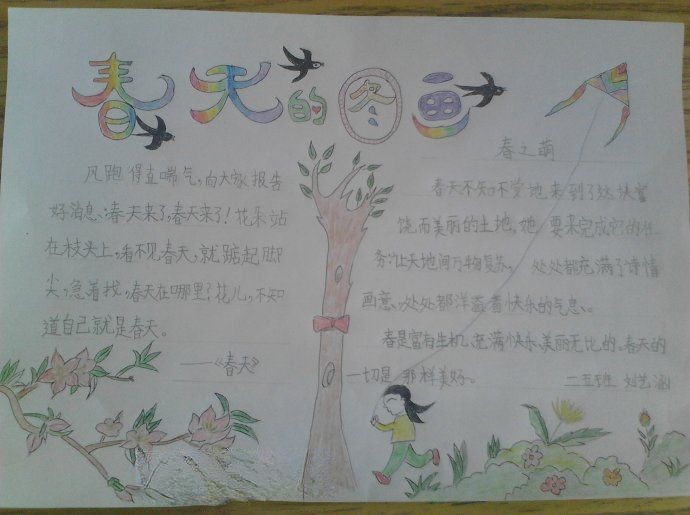 春天的图画
风跑得直喘气,向大家报告
好消息:春天来了,春天来了!花朵站
在枝头上,看不见春天,就踮起脚
尖,急着找,春天在哪里?花儿,不知
道自己就是春天。
——《春天》
春之萌
春天不知不觉地来到了这块富
饶而美丽的土地,她要来完成它的任
务:让天地间万物复苏,处处都充满了诗情
画意、处处都洋溢着快乐的气息。
春是富有生机、充满快乐、美丽无比的。春天的
一切是那样美好。
二五班 刘艺涵